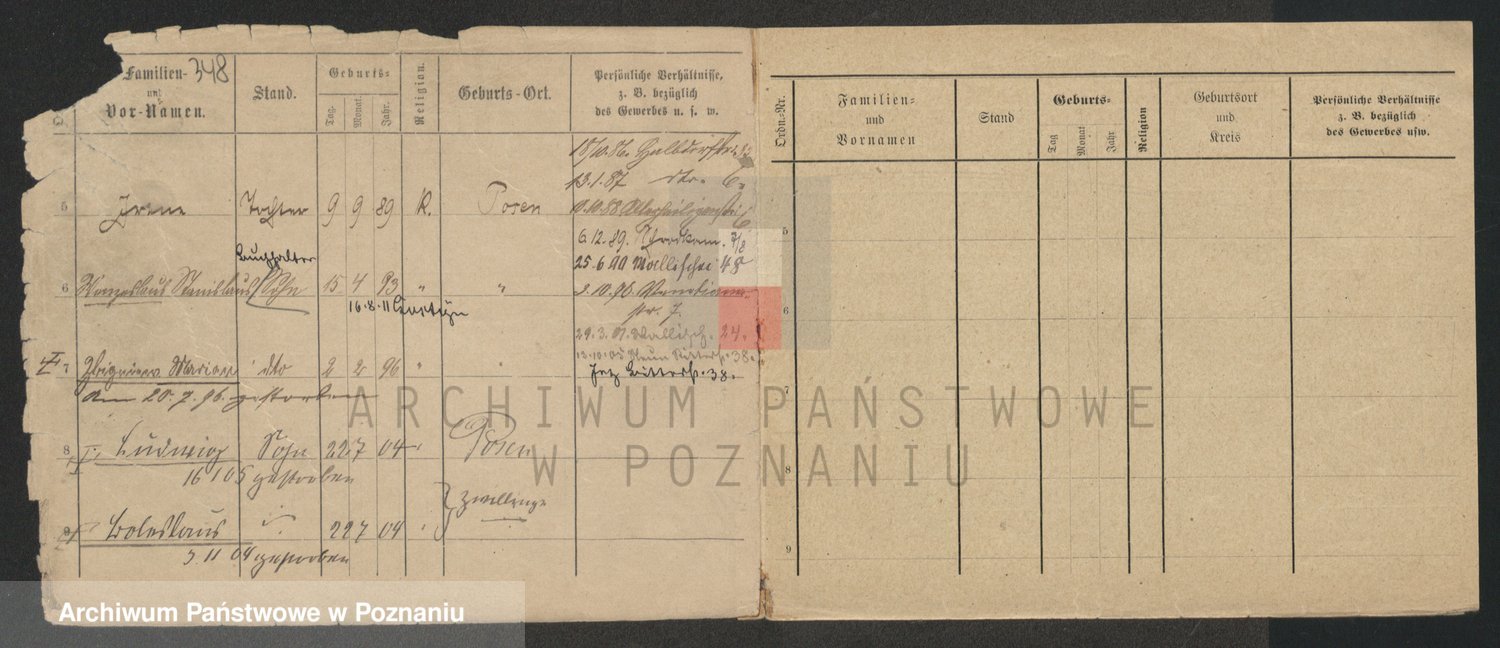 348
Familien-
und
Vor-Namen.
Stand.
Geburts-
Tag.
Monat.
Jahr.
Religion.
Geburts-Ort.
Persönliche Verhältnisse,
z. B. bezüglich
des Gewerbes u. s. w.
18/10.86. Halbdorfstr. 32
13.1.87 dto. 6.
5 Irene Tochter 9 9 89 K. Posen 10.10.88 Allerheiligenstr. 6
6.12.89.
Buchhalter
25.6.90 Wallischei 48
6 Stanislaus Sohn 15 4 93 " "
str. 7.
16.8.11
29.3.01. Wallisch. 24.
Ritterstr. 38.
7 Zbigniew Marian dto 2 2 96 "
Ritterstr. 38.
Am 20.7.96. gestorben
8 Ludwig Sohn 22 7 04 " Posen
16 1 05 gestorben
Zwillinge
9 Boleslaus " 22 7 04 "
3.11 04 gestorben
Ordn.-Nr.
Familien-
und
Vornamen
Stand
Geburts-
Tag
Monat
Jahr
Religion
Geburtsort
und
Kreis
Persönliche Verhältnisse
z. B. bezüglich
des Gewerbes usw.
5
6
7
8
9
ARCHIWUM PAŃSTWOWE
W POZNANIU
Archiwum Państwowe w Poznaniu